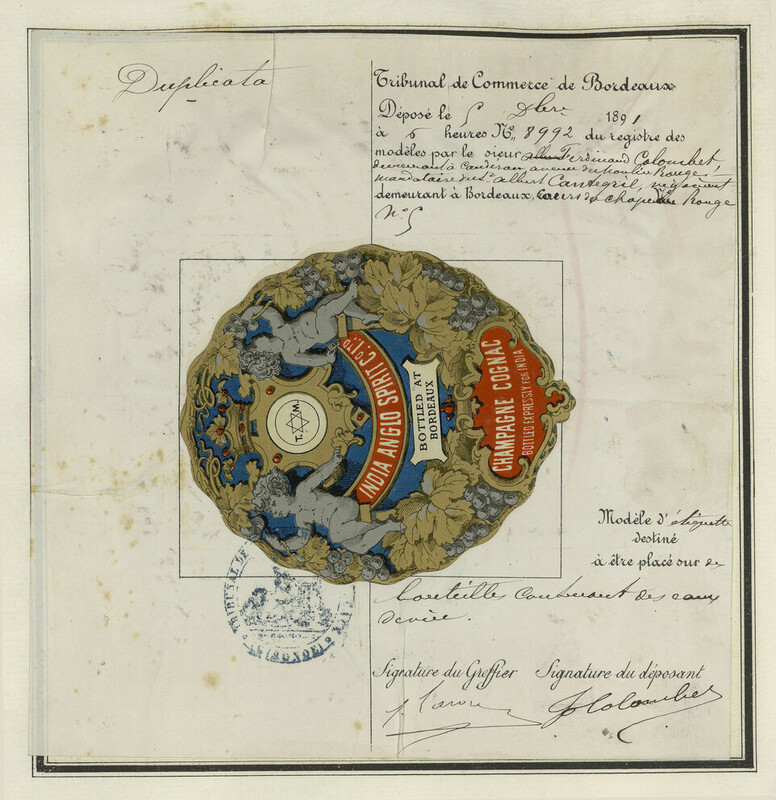 Duplicata
Tribunal de Commerce de Bordeaux
Déposé le 5 Xbre 1891
à 6 heures No. 8992 du registre des
modèles par le sieur Ferdinand Colombet
demeurant à Caudéran, avenue du moulin rouge
mandataire du Sr. Albert Cantegril, négociant
demeurant à Bordeaux, cours du chapeau Rouge
No. 5
T. W.
INDIA ANGLO SPIRIT Co. LTD.
BOTTLED AT
BORDEAUX
CHAMPAGNE COGNAC
BOTTLED EXPRESSLY FOR INDIA
Modèle d'étiquette
destiné
à être placé sur des
bouteilles contenant des eaux
de vie.
TRIBUNAL DE
(GIRONDE)
Signature du Greffier Signature du déposant
Colombet